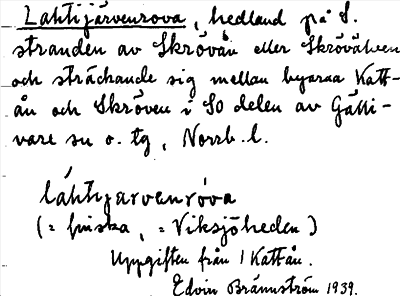 Lahtijärvenrova, hedland på S.
stranden av Skrövån eller Skrövälven
och sträckande sig mellan byarna Katt-
ån och Skröven i SO delen av Gälli-
vare sn o. tg, Norrb. l.
láhtijarvenróva
(= finska, = Viksjöheden)
Uppgiften från 1 Kattån.
Edvin Brännström 1939.